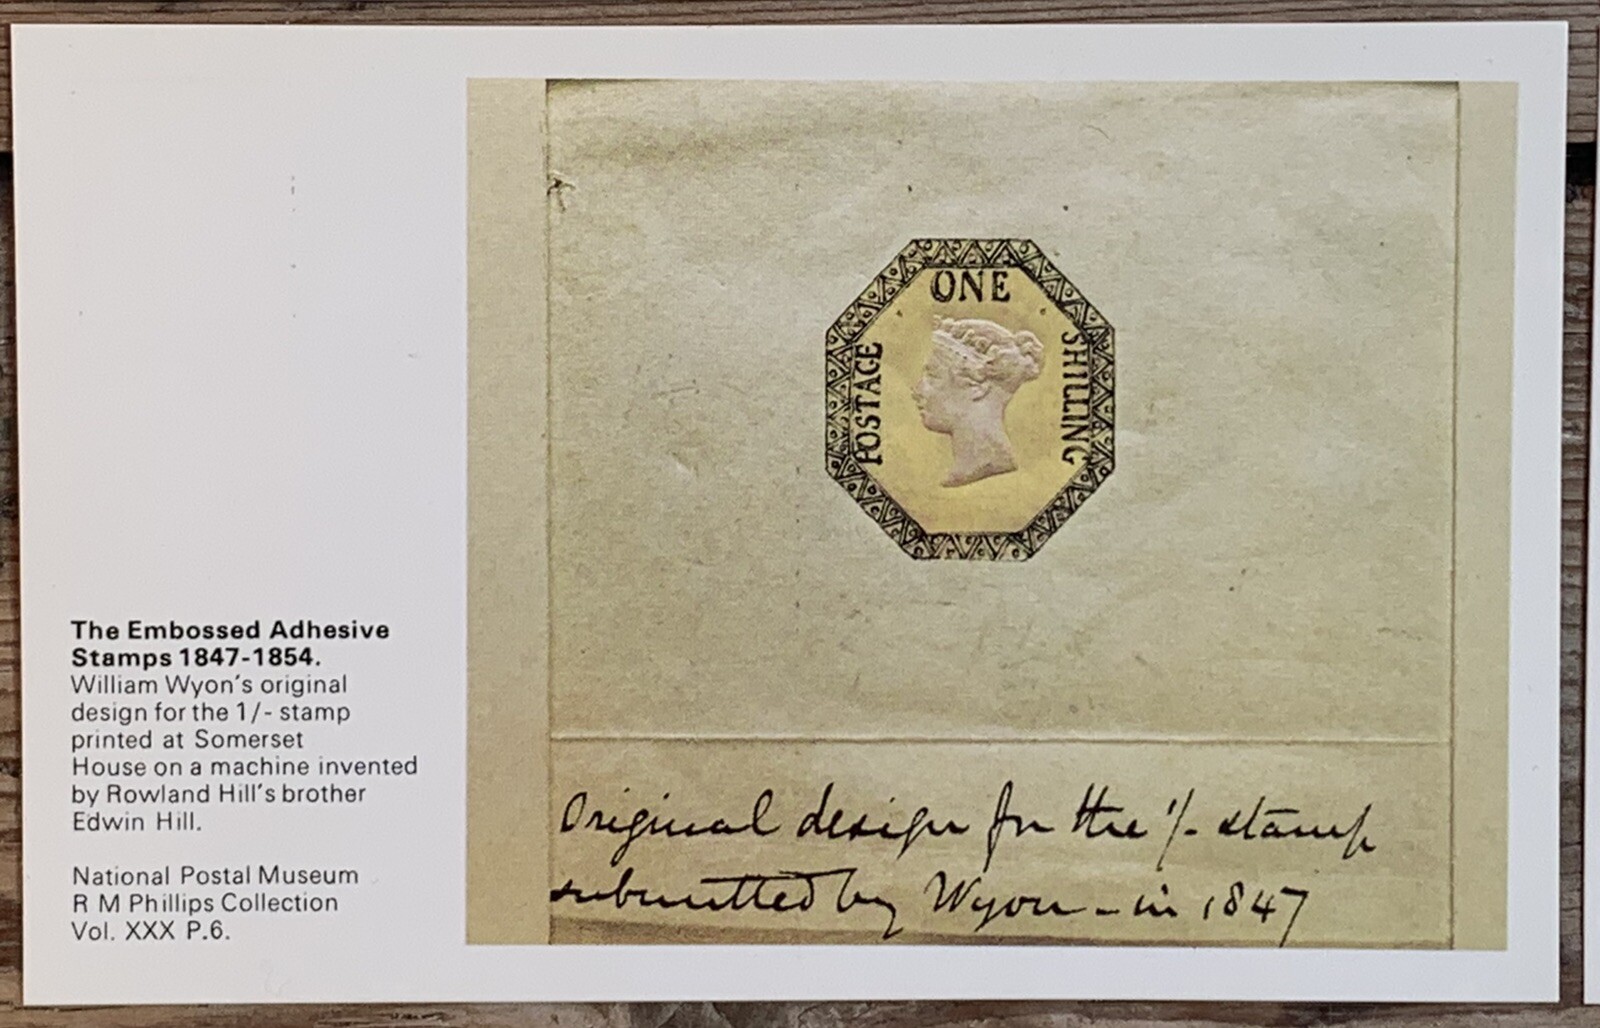 The Embossed Adhesive
Stamps 1847-1854.
William Wyon's original
design for the 1/- stamp
printed at Somerset
House on a machine invented
by Rowland Hill's brother
Edwin Hill.
National Postal Museum
R M Phillips Collection
Vol. XXX P.6.
ONE
SHILLING
POSTAGE
Original design for the 1/- stamp
submitted by Wyon - in 1847